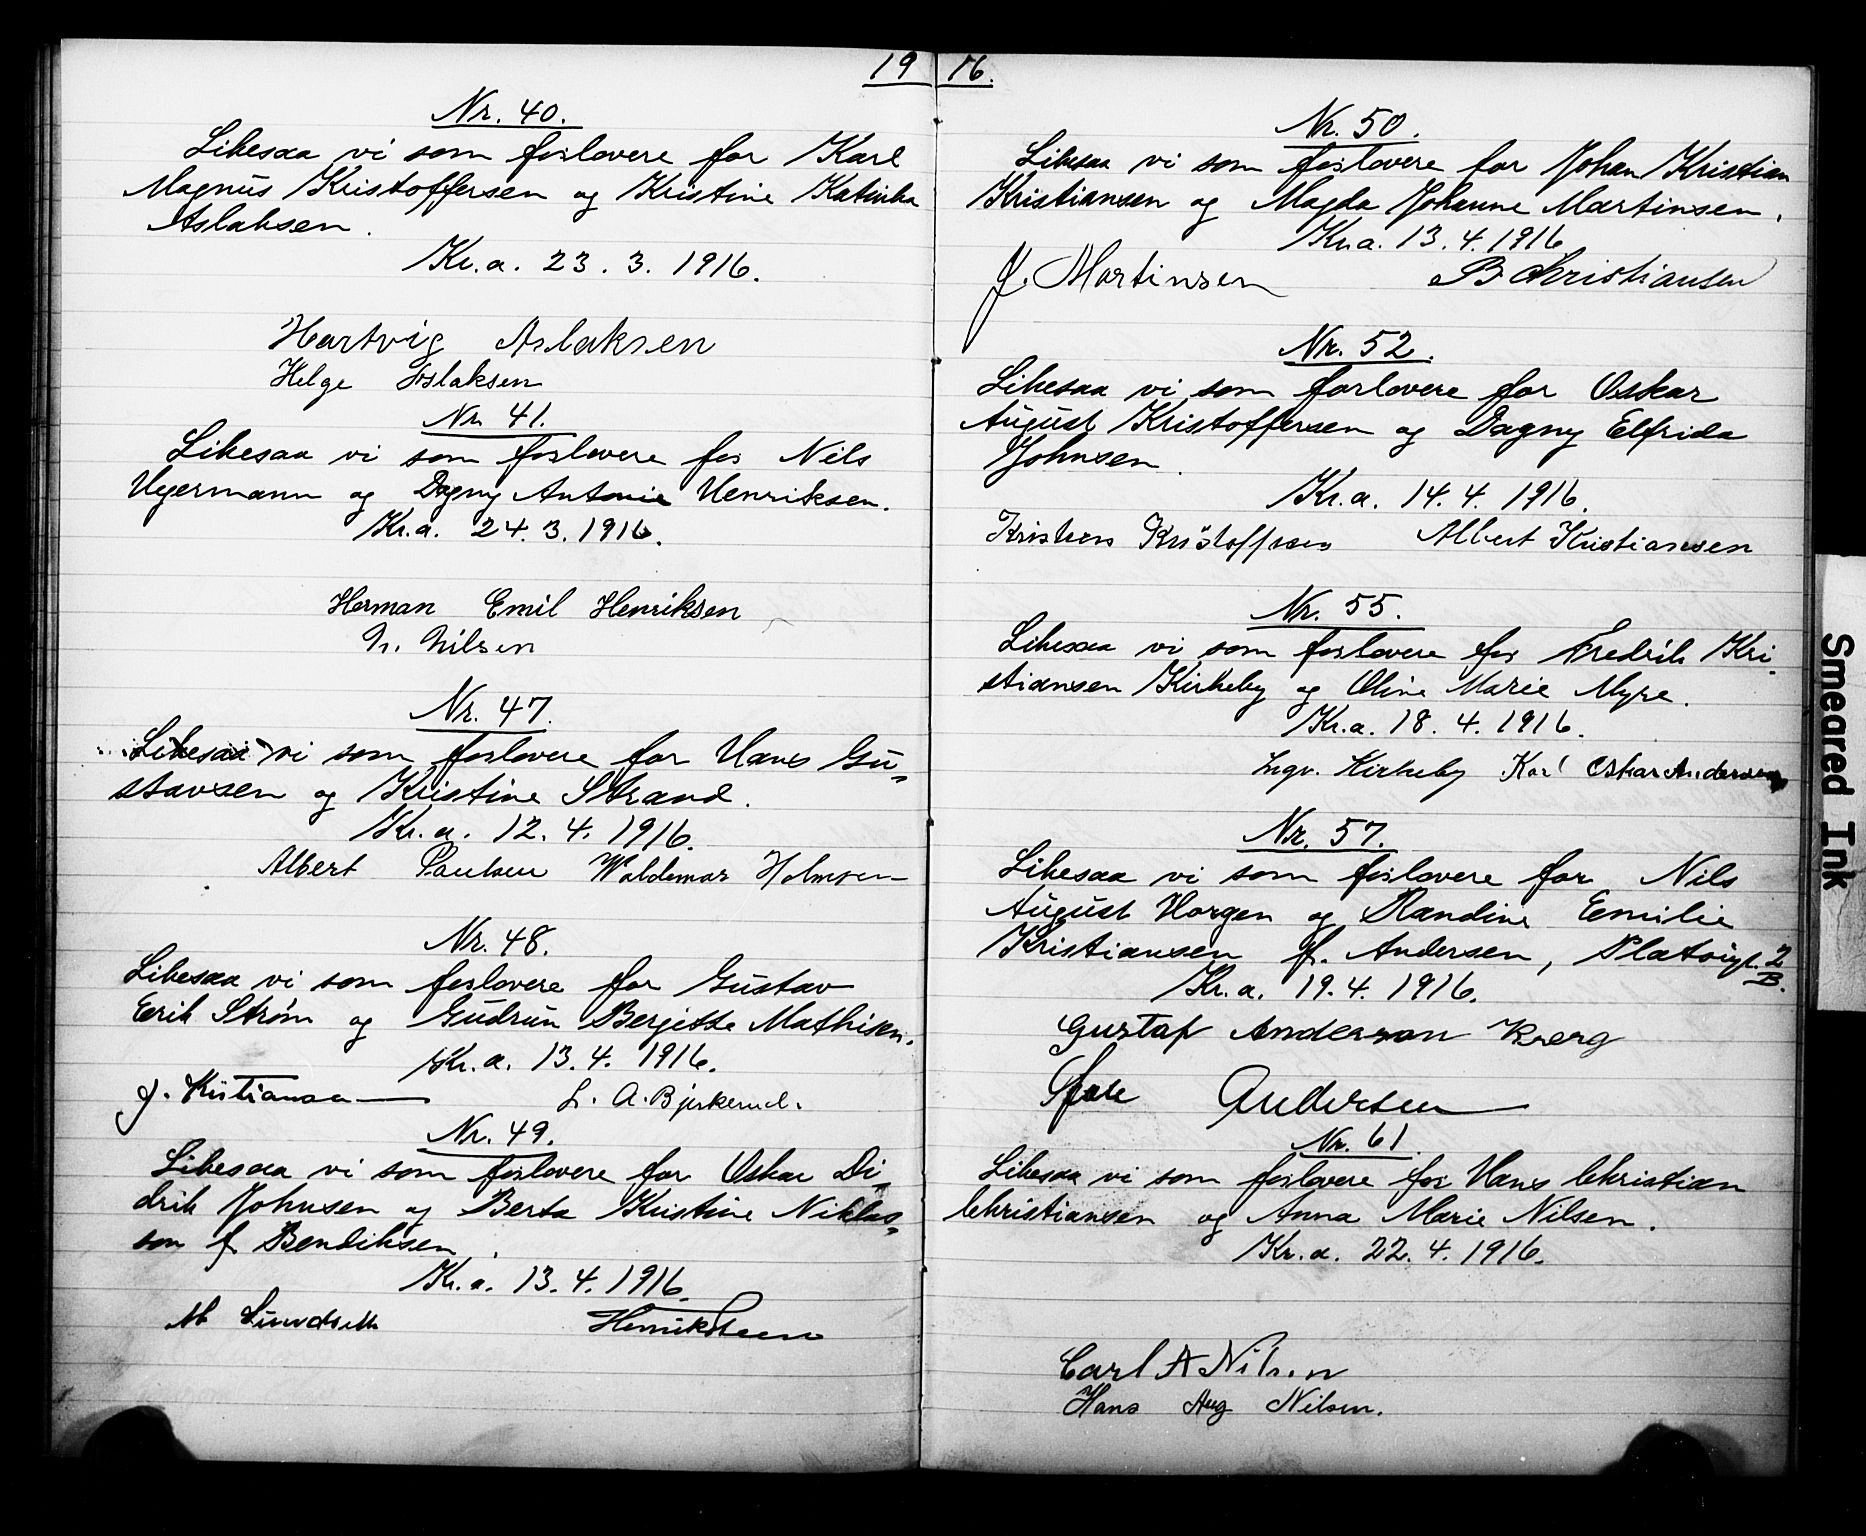 19 16.
Nr. 40.
Likesaa vi som forlovere for Karl
Magnus Kristoffersen og Kristine Katinka
Aslaksen.
Kr.a. 23.3.1916.
Hartvig Aslaksen
Helge Aslaksen
Nr. 41.
Likesaa vi som forlovere for Nils
Ugermann og Dagny Antonie Henriksen.
Kr.a. 24.3.1916.
Herman Emil Henriksen
N. Nilsen
Nr. 47.
Likesaa vi som forlovere for Hans Gu-
stavsen og Kristine Strand.
Kr.a. 12.4.1916.
Albert Paulsen Waldemar Holmsen
Nr. 48.
Likesaa vi som forlovere for Gustav
Erik Strøm og Gudrun Bergitte Mathisen.
Kr.a. 13.4.1916.
J. Kristiansen L. A. Bjerkerud.
Nr. 49.
Likesaa vi som forlovere for Oskar Di-
drik Johnsen og Berta Kristine Niklas-
son f. Bendiksen.
Kr.a. 13.4.1916.
M Lundseth Henriksteen
Nr. 50.
Likesaa vi som forlovere for Johan Kristian
Kristiansen og Magda Johanne Martinsen.
Kr.a. 13.4.1916.
J. Martinsen B Christiansen
Nr. 52.
Likesaa vi som forlovere for Oskar
August Kristoffersen og Dagny Elfrida
Johnsen.
Kr.a. 14.4.1916.
Kristoffersen Albert Kristiansen
Nr. 55.
Likesaa vi som forlovere for Fredrik Kri-
stiansen Kirkeby og Oline Marie Myre.
Kr.a. 18.4.1916.
Ingv. Kirkeby Karl Oskar Andersen
Nr. 57.
Likesaa vi som forlovere for Nils
August Horgen og Randine Emilie
Kristiansen f. Andersen, Platougt. 2
B.
Kr.a. 19.4.1916.
Gustaf Anderson Krerg
Andersen
Nr. 61.
Likesaa vi som forlovere for Hans Christian
Christiansen og Anna Marie Nilsen.
Kr.a. 22.4.1916.
Carl A Nilsen
Hans Aug Nilsen.
Smeared Ink